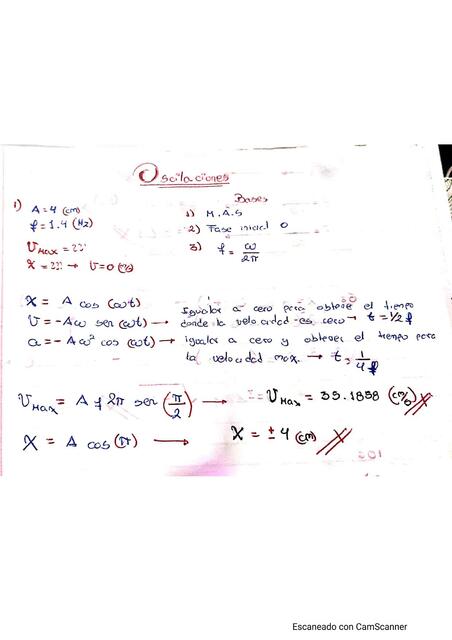 Oscilaciones
1) A = 4 (cm)
f = 1.4 (Hz)
Bases
1) M.A.S
2) Fase inicial 0
3) f = ω/2π
Vmax = ??
X = ?? → V = 0 (m/s)
X = A cos (ωt)
V = -Aω sen (ωt) → Igualar a cero para obtener el tiempo donde la velocidad es cero → t = 1/2 f
a = -Aω² cos (ωt) → igualar a cero y obtener el tiempo para la velocidad max. → t = 1/4 f
Vmax = A f 2π sen (π/2) → Vmax = 35.1858 (cm/s)
X = A cos (π) → X = ± 4 (cm)
Escaneado con CamScanner